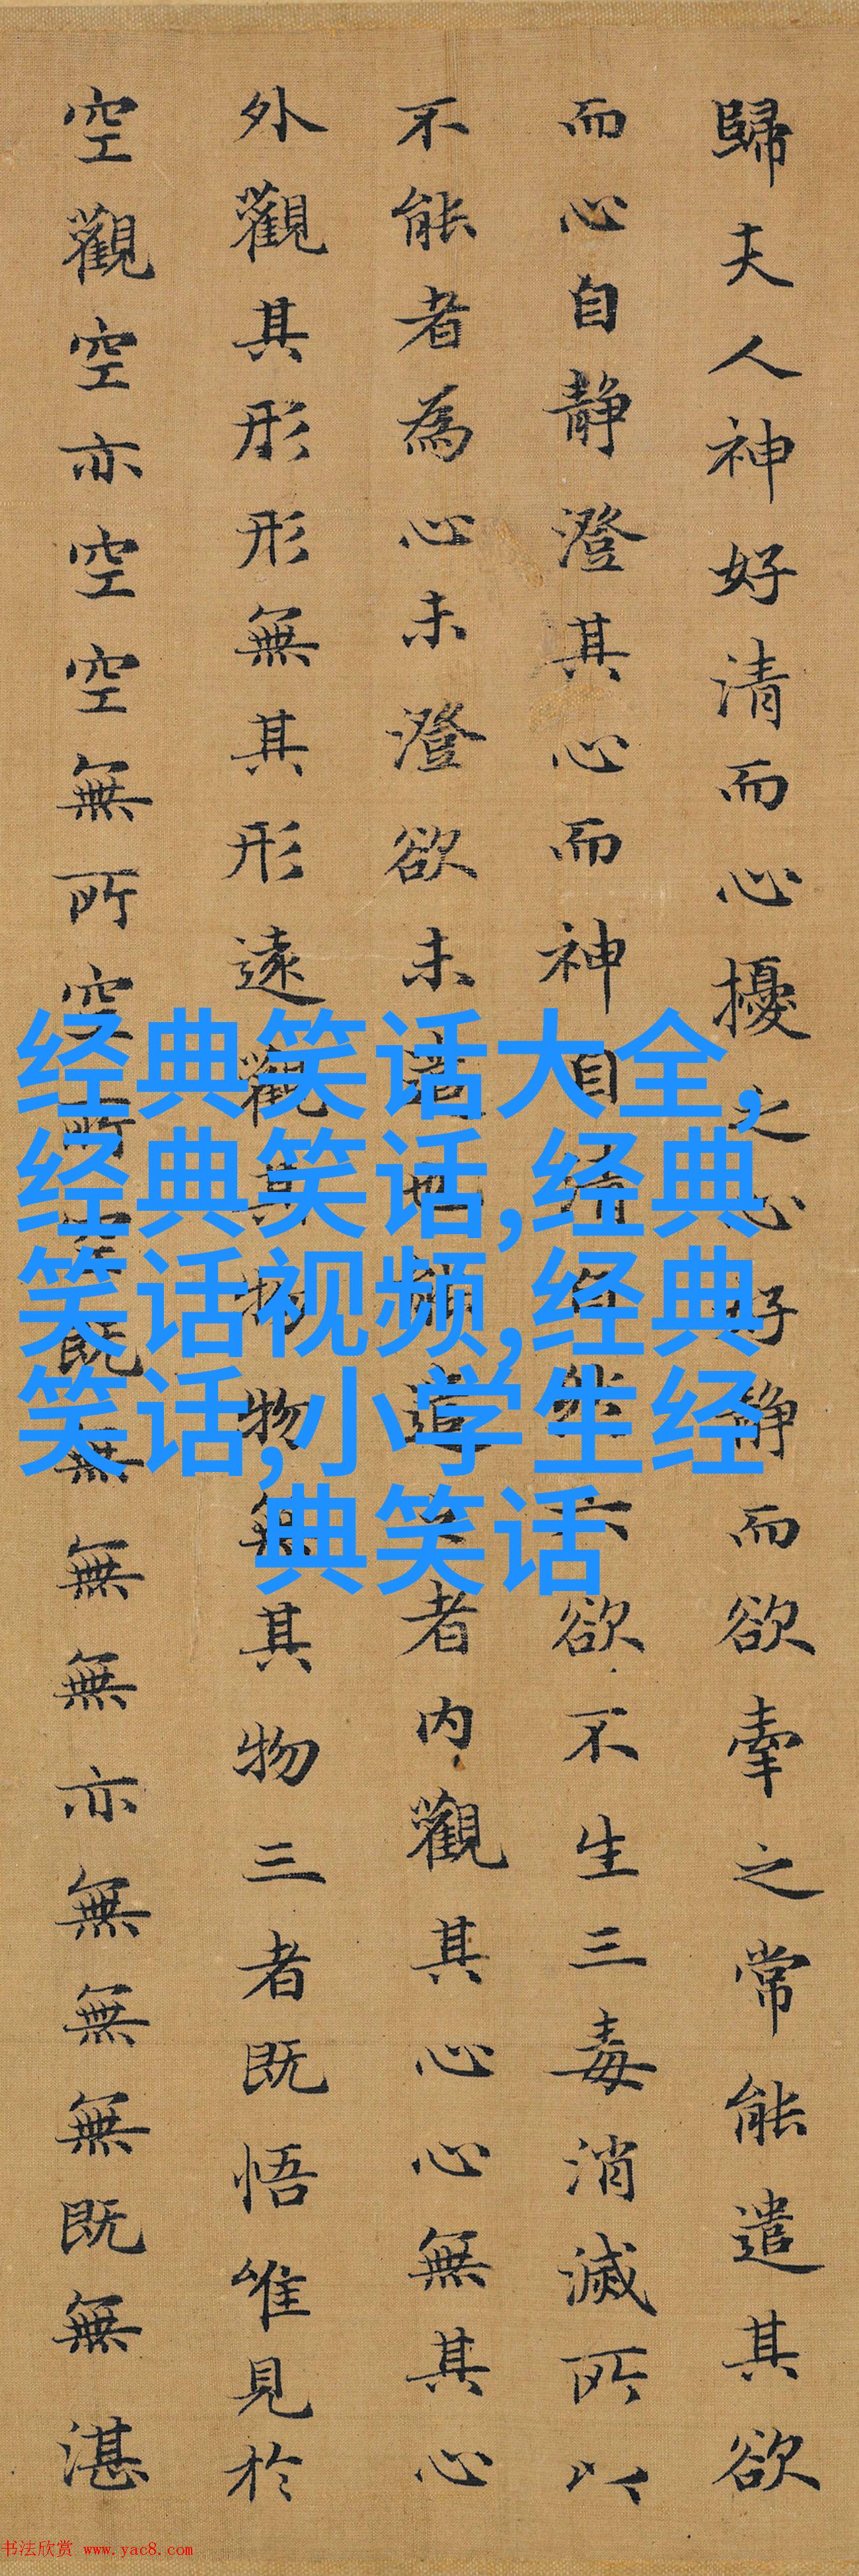 歸夫人神好清而心擾之心好静而欲牽之常能遣其欲
而心自静澄其心而神自清自然六欲不生三毒消滅所以
不能者為心未澄欲未遣也能遣之者内觀其心心無其心
外觀其形形無其形遠觀其物物無其物三者既悟唯見於
空觀空亦空空無所空所空既無無無亦無無無既無湛
经典笑话大全,
经典笑话,经典
笑话视频,经典
笑话,小学生经
典笑话
书法欣赏 www.yac8.com